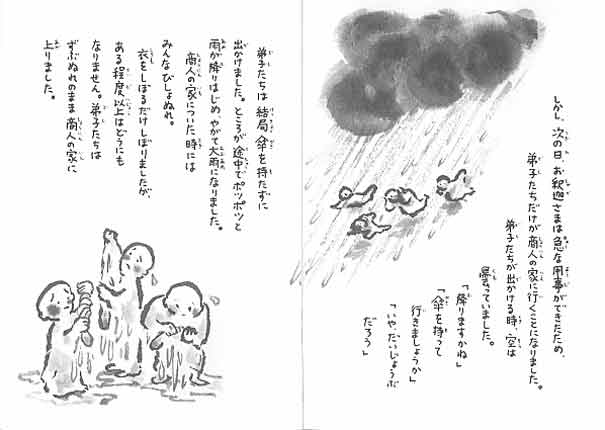 しかし、次の日、お釈迦さまは急な用事ができたため、
弟子たちだけが商人の家に行くことになりました。
弟子たちが出かける時、空は
曇っていました。
「降りますかね」
「傘を持って
行きましょうか」
「いや、だいじょうぶ
だろう」
弟子たちは結局、傘を持たずに
出かけました。ところが途中でポツポツと
雨が降りはじめ、やがて大雨になりました。
商人の家についた時には
みんなびしょぬれ。
衣をしぼるだけしぼりましたが、
ある程度以上はどうにも
なりません。弟子たちは
ずぶぬれのまま商人の家に
上りました。